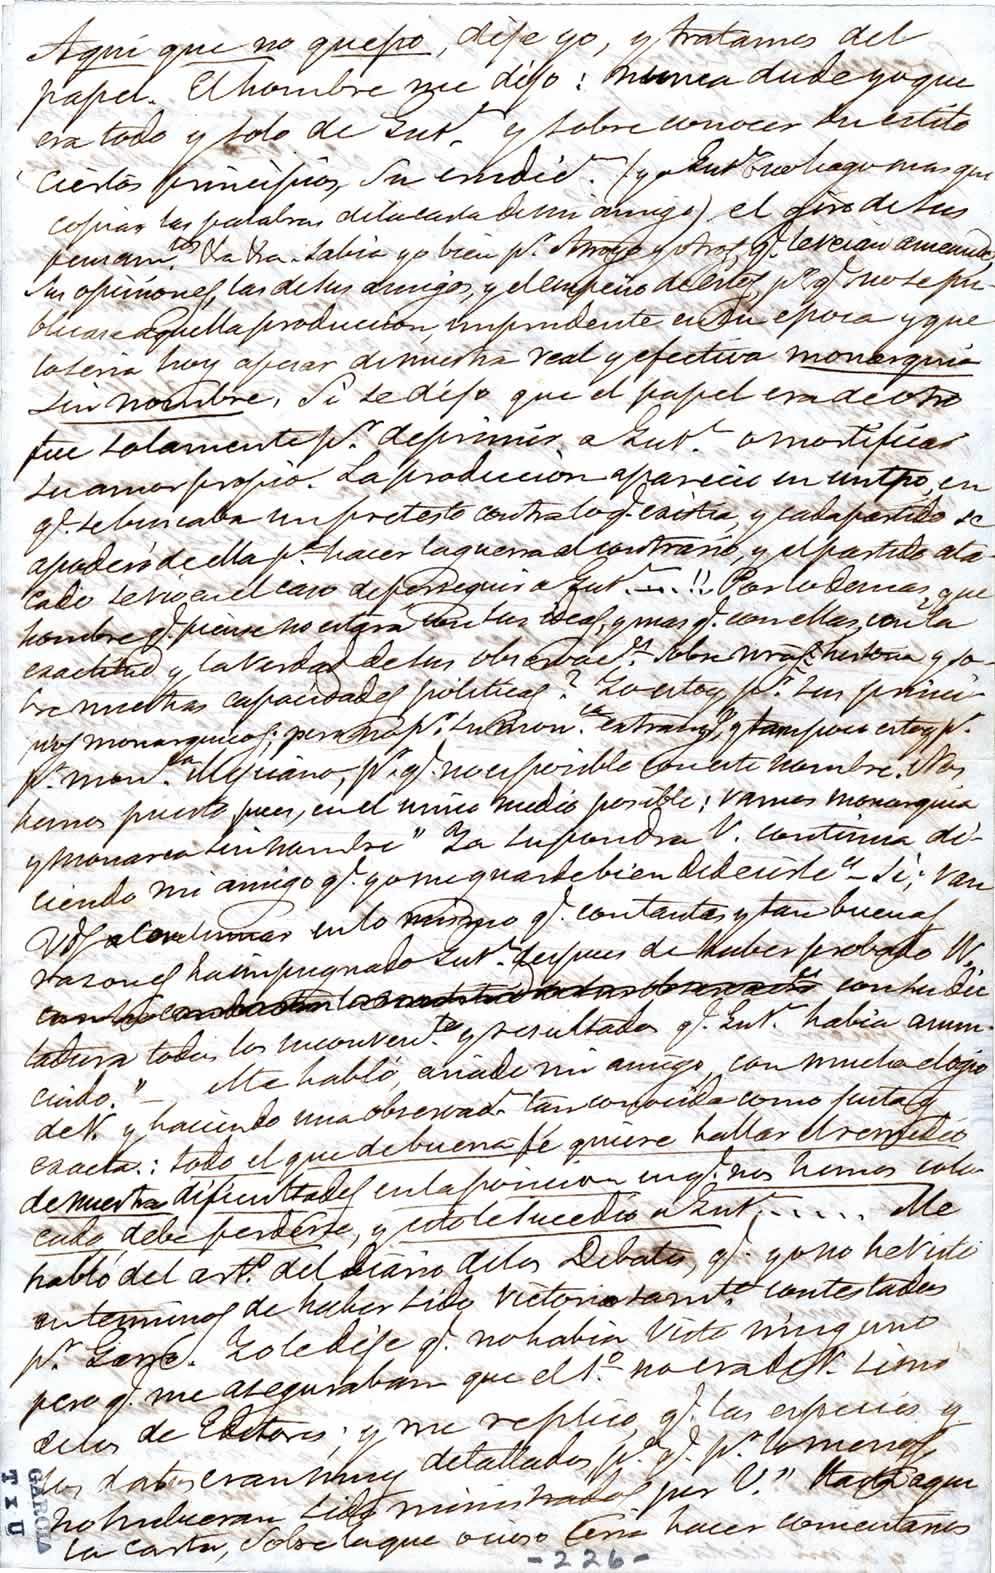 Aqui que no quepo, dije yo, y tratamos del
papel. El hombre me dijo: nunca dude yo que
era todo y solo de Gut.z y sobre conocer su estilo
ciertos principios, su erudic.n (yo Gut.z no hago mas que
copiar las palabras de la carta de mi amigo) el giro de sus
pensam.tos &a &a. sabia yo bien p.r Arroyo y otros, q.e le veian amenudo,
sus opiniones, las de sus amigos, y el empeño de estos p.a q.e no se pu-
blicase aquella produccion, imprudente en su epoca y que
lo seria hoy apesar de nuestra real y efectiva monarquia
sin nombre. Si se dijo que el papel era de otro
fue solamente p.r deprimir a Gut.z o mortificar
su amor propio. La produccion aparecio en un tpo, en
q.e se buscaba un pretesto contra lo q.e existia, y cada partido se
apoderó de ella p.a hacer la guerra al contrario, y el partido ata-
cado se vio en el caso de perseguir a Gut.z ....!! Por lo demas, que
hombre q.e piense no estará con sus ideas, y mas q.e con ellas, con la
exactitud y la verdad de sus observac.es sobre nra. historia y so-
bre nuestras capacidades politicas? Yo estoy p.r sus princi-
pios monarquicos; pero no p.r su mon.ca extrang.a, y tampoco estoy p.r
p.r mon.ca Mejicano, p.r q.e no es posible con este nombre. Nos
hemos puesto, pues, en el unico medio posible; vamos monarquia
y monarca sin nombre" Ya supondra V. continua di-
ciendo mi amigo q.e yo me guarde bien de decirle "Si; van
Vds a continuar en lo mismo q.e con tantas y tan buenas
razones ha impugnado Gut.z despues de haber probado N.
con su dic
tadura todos los inconven.tes y resultados q.e Gut.z habia anun-
ciado." Me habló, añade mi amigo, con mucho elogio
de N. y haciendo una observac.n tan conocida como justa y
exacta: todo el que de buena fé quiere hallar el remedio
de nuestras dificultades en la posicion en q.e nos hemos colo
cado debe perderse, y esto le sucedio a Gut.z ..... Me
habló del art.o del Diario de los Debates, q.e yo no he visto
en terminos de haber sido victoriosam.te contestados
p.r Yo le dije q.e no habia visto ninguno
pero q.e me aseguraban que el 1.o no era de N. sino
de los de Editores; y me replicó, q.e las especies y
los datos eran muy detallados, p.a q.e p.r lo menos
no hubieran sido ministrados por V." Hasta aqui
la carta, sobre la que ocioso seria hacer comentarios
-226-
GARCIA
TxU